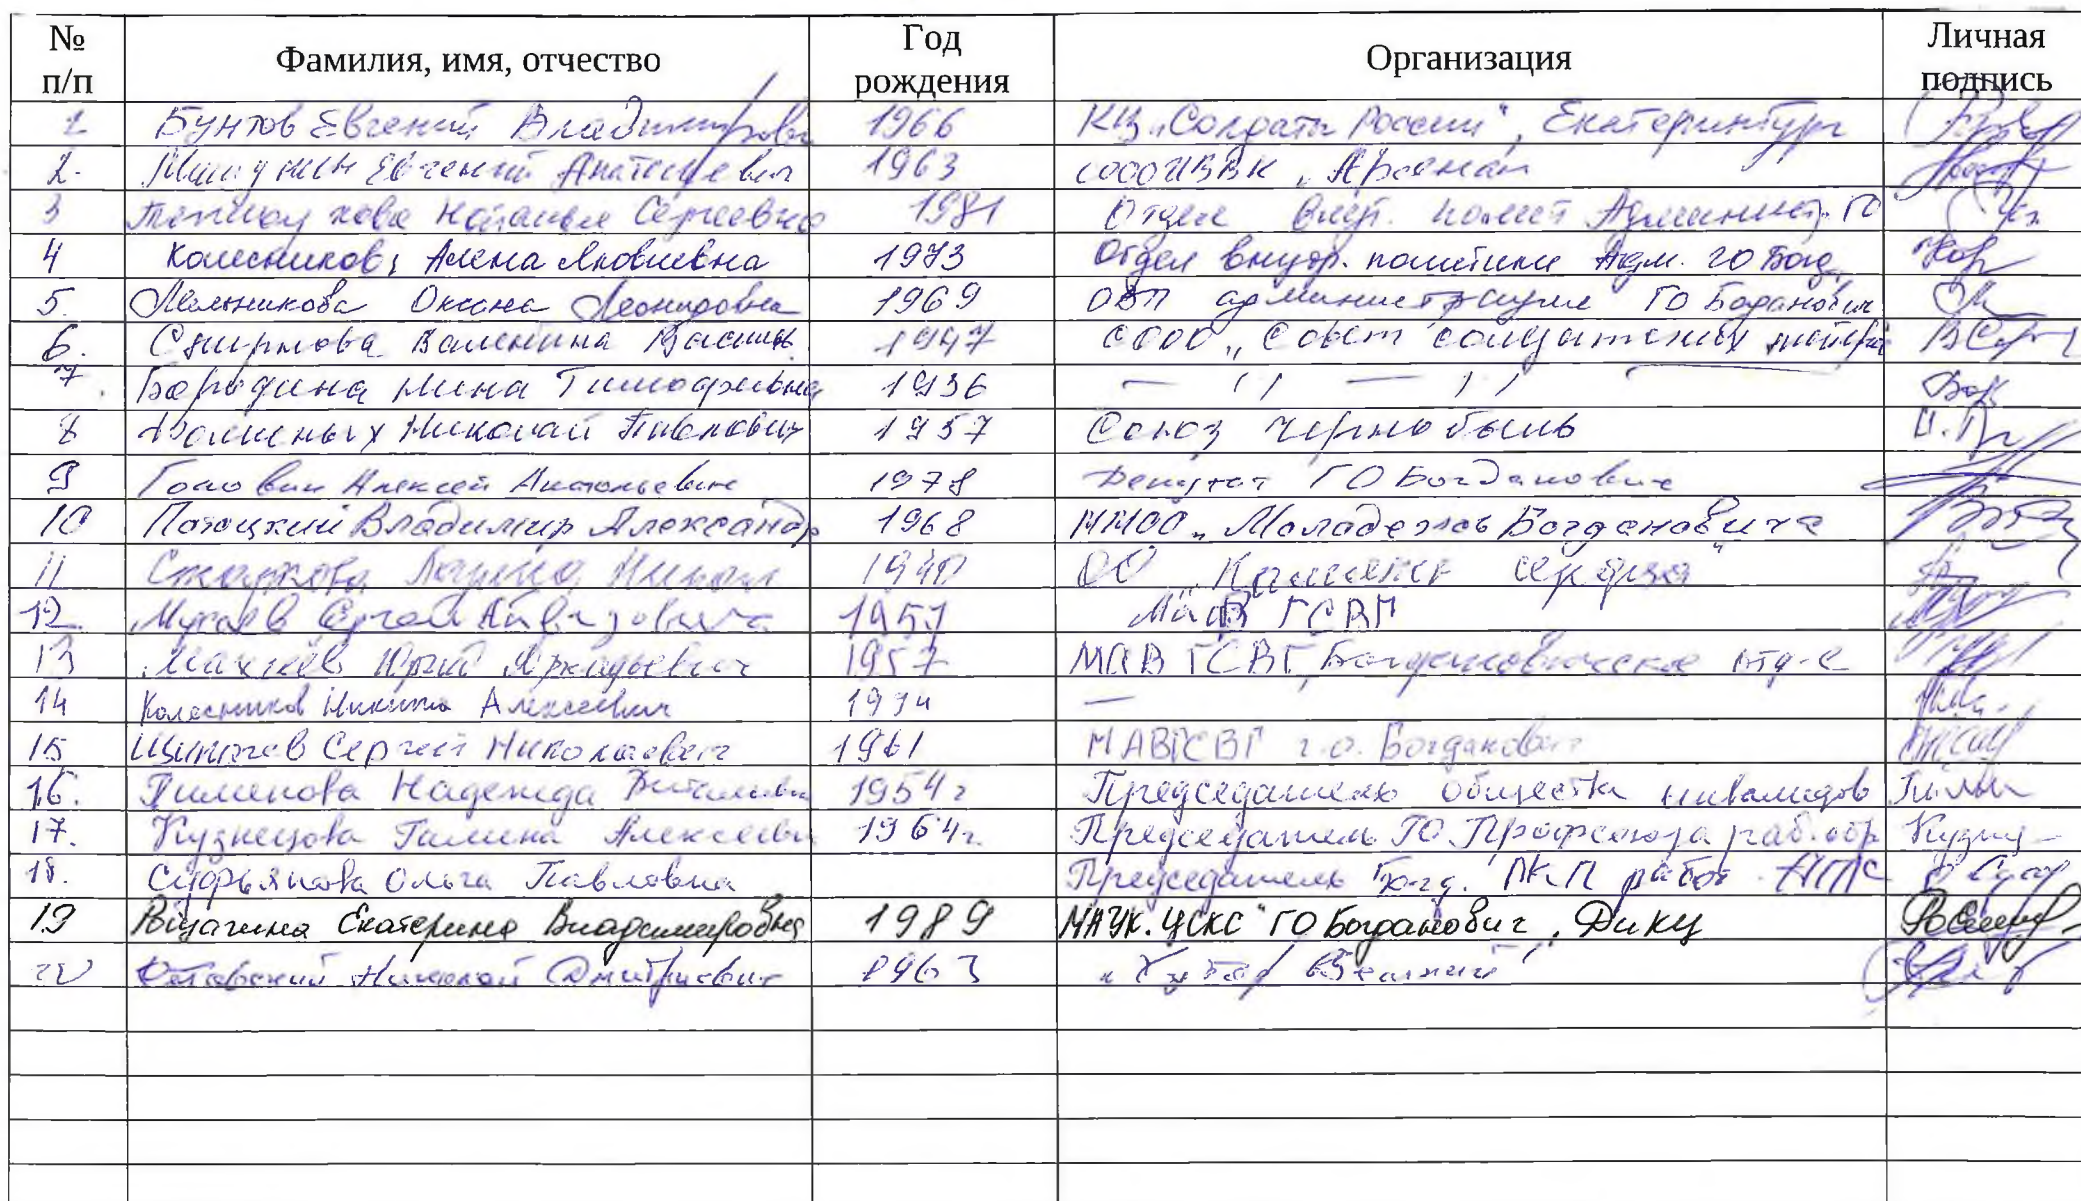 № п/п Фамилия, имя, отчество Год рождения Организация Личная подпись
1 Бунтов Евгений Владимирович 1966 КЦ „Солдаты России", Екатеринбург
2. Мишунин Евгений Анатольевич 1963 СООО ИВВК „Арсенал
3 Наталья Сергеевна 1981 Отдел внут. полит Админист. ГО
4 Колесникова Алена Яковлевна 1973 Отдел внутр. политики Адм. ГО Богд.
5. Мельникова Оксана Леонидовна 1969 ОВП администрации ГО Богданович
6. Смирнова Валентина Васильев. 1947 СООО „Совет солдатских матерей
7. Бородина Нина Тимофеевна 1936 — // — //
8 Николай Павлович 1957 Союз Чернобыль
9 Головин Алексей Анатольевич 1978 Депутат ГО Богданович
10 Потоцкий Владимир Александр 1968 ММОО „Молодежь Богдановича
11 Лариса Никол 1940 ОО
12. Мусаев Сергей Айвазович 1957 МАВ ГСВГ
13 Махнев Юрий Аркадьевич 1957 МАВ ГСВГ, Богдановичское отд-е
14 Колесников Никита Алексеевич 1994 —
15 Сергей Николаевич 1961 МАВГСВГ г.о. Богданович
16. Пименова Надежда Витальевн 1954г Председатель общества инвалидов
17. Кузнецова Галина Алексеевн 1964г. Председатель ГО Профсоюза раб. обр
18. Суфьянова Ольга Павловна Председатель Богд. работ АПК
19 Рощагина Екатерина Владимировна 1989 МАУК. ЦСКС" ГО Богданович, ДиКЦ
20 Николай Дмитриевич 1963 „Хутор